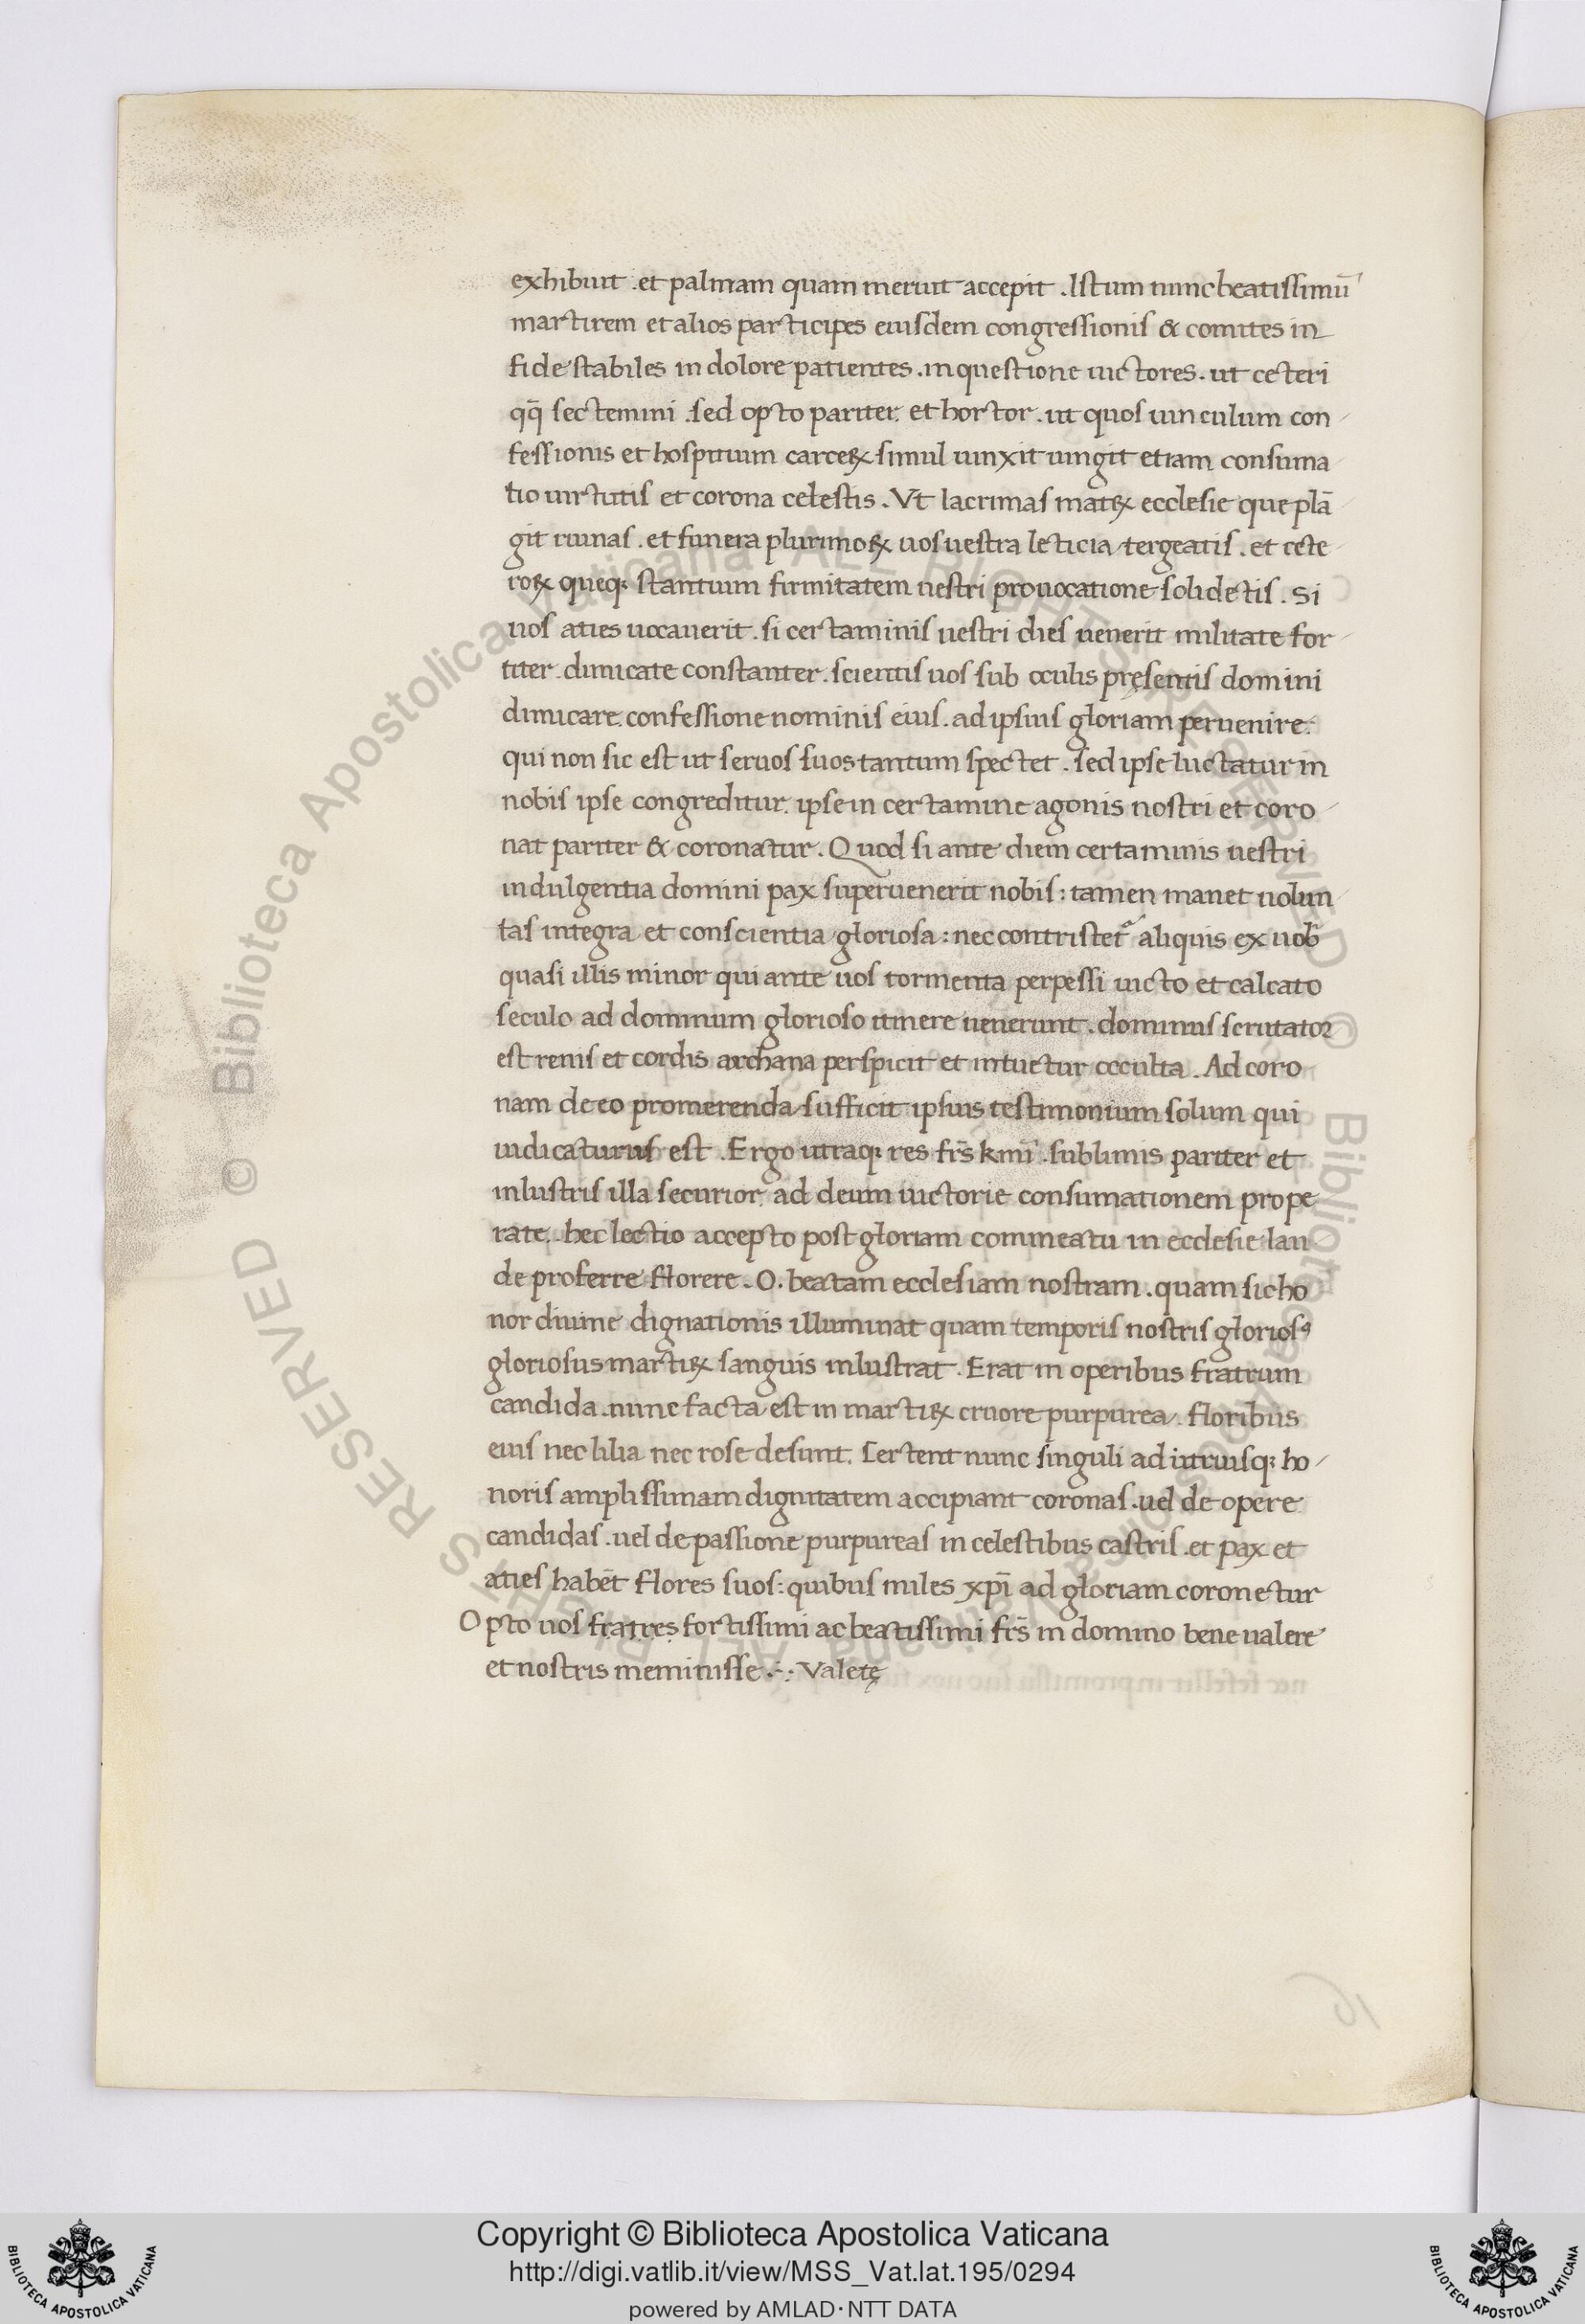 exhibuit . et palmam quam meruit accepit . Istum nunc beatissimū
martirem et alios participes eiusdem congressionis & comites in
fide stabiles in dolore patientes . in questione uictores . ut ceteri
qq̄ sectemini . sed opto pariter et hortor . ut quos uinculum con
fessionis et hospitium carceꝝ simul uinxit uingit etiam consuma
tio uirtutis et corona celestis . Vt lacrimas matꝝ ecclesie que plā
git ruinas . et funera plurimoꝝ uos uestra leticia tergeatis . et cete
roꝝ queqꝫ stantium firmitatem uestri prouocatione solidetis . Si
uos aties uocauerit . si certaminis uestri dies uenerit militate for
titer . dimicate constanter . scientis uos sub oculis pręsentis domini
dimicare . confessione nominis eius . ad ipsius gloriam peruenire .
qui non sic est ut seruos suos tantum spectet . sed ipse luctatur in
nobis ipse congreditur . ipse in certamine agonis nostri et coro
nat pariter & coronatur . Quod si ante diem certaminis uestri
indulgentia domini pax superuenerit nobis : tamen manet uolun
tas integra et conscientia gloriosa : nec contristet᷑ aliquis ex uob̄
quasi illis minor qui ante uos tormenta perpessi uicto et calcato
seculo ad dominum glorioso itinere uenerunt . dominus scrutator
est renis et cordis archana perspicit et intuetur occulta . Ad coro
nam de eo promerenda sufficit ipsius testimonium solum qui
iudicaturus est . Ergo utraqꝫ res fr̄s kmī . sublimis pariter et
inlustris illa securior . ad deum uictorie consumationem prope
rate . hec lectio accepto post gloriam commeatu in ecclesie lau
de proferre florere . O . beatam ecclesiam nostram . quam sic ho
nor diuine dignationis illuminat quam temporis nostris gloriosꝰ
gloriosus martiꝝ sanguis inlustrat . Erat in operibus fratrum
candida . nunc facta est in martiꝝ cruore purpurea . floribus
eius nec lilia nec rose desunt . Certent nunc singuli ad utriusqꝫ ho
noris amplissimam dignitatem accipiant coronas . uel de opere
candidas . uel de passione purpureas in celestibus castris . et pax et
aties habēt flores suos : quibus miles xp̄i ad gloriam coronetur
Opto uos fratres fortissimi ac beatissimi fr̄s in domino bene ualere
et nostris meminisse . ∴ Valetę
16
© Biblioteca Apostolica Vaticana ALL RIGHTS RESERVED
© Biblioteca Apostolica Vaticana ALL RIGHTS RESERVED
BIBLIOTECA APOSTOLICA VATICANA
Copyright © Biblioteca Apostolica Vaticana
http://digi.vatlib.it/view/MSS_Vat.lat.195/0294
powered by AMLAD·NTT DATA
BIBLIOTECA APOSTOLICA VATICANA